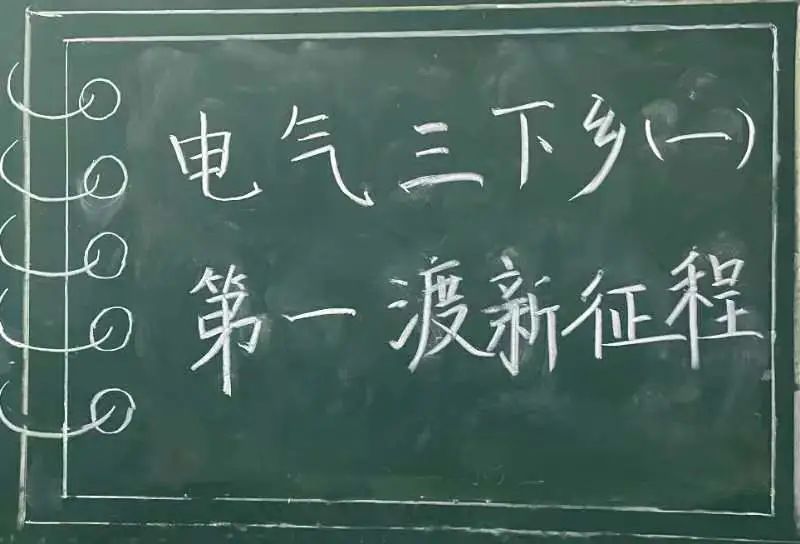 电气三下乡(一)
第一渡新征程